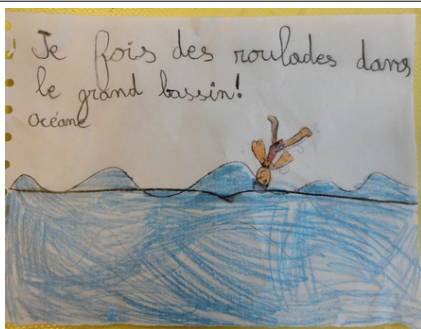 Je fois des roulades dans
le grand bassin!
Océane